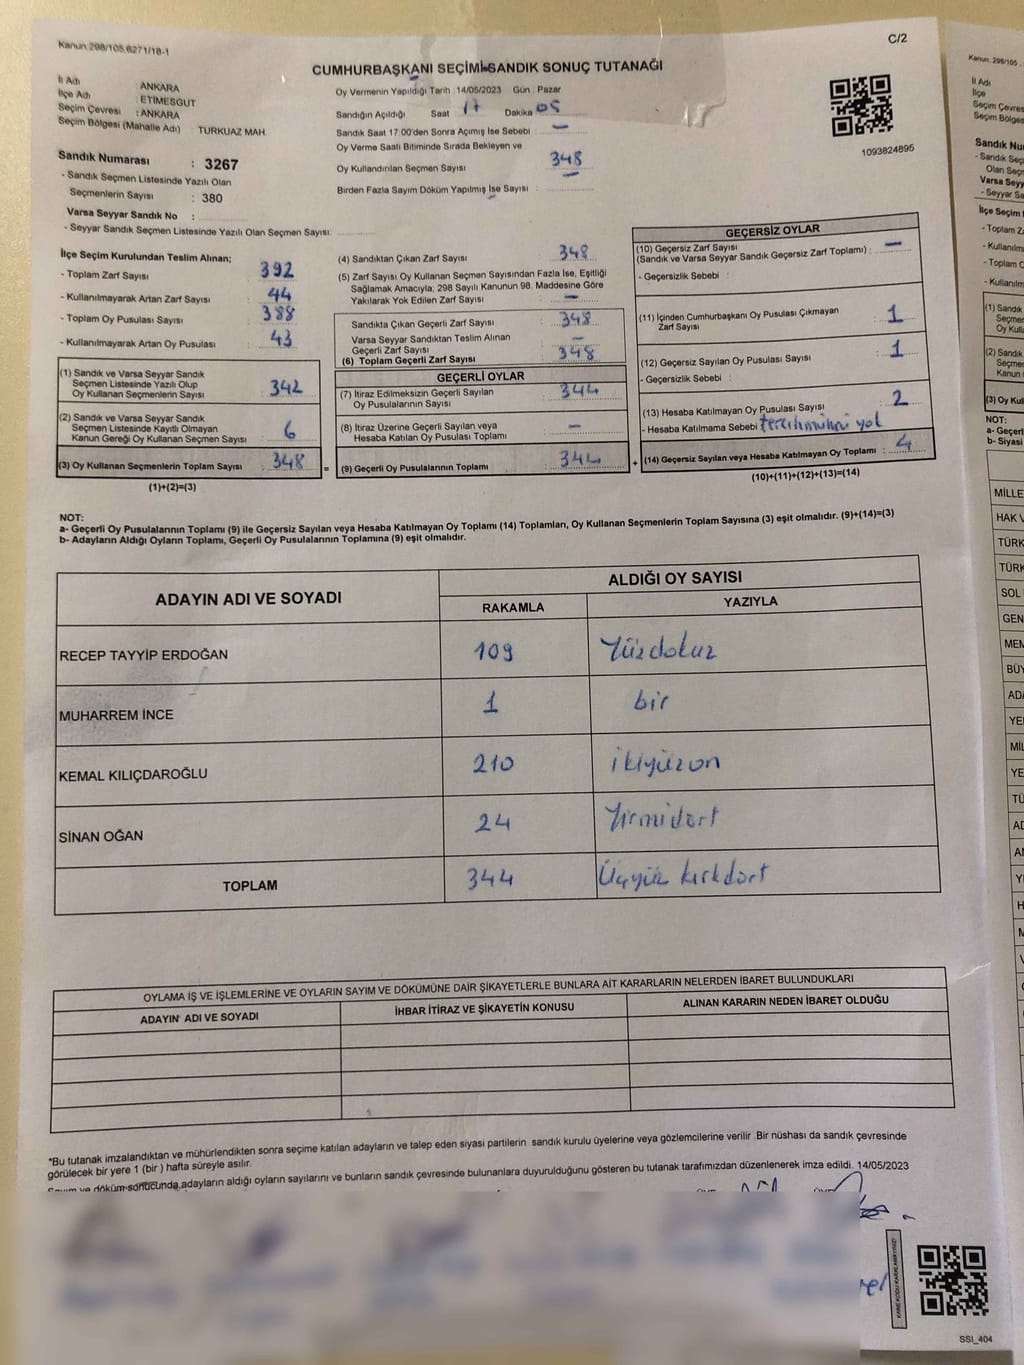 Kanun:298/105,6271/18-1
C/2
CUMHURBAŞKANI SEÇİMİ SANDIK SONUÇ TUTANAĞI
İl Adı : ANKARA
İlçe Adı : ETİMESGUT
Seçim Çevresi : ANKARA
Seçim Bölgesi (Mahalle Adı) : TURKUAZ MAH.
Sandık Numarası : 3267
- Sandık Seçmen Listesinde Yazılı Olan
Seçmenlerin Sayısı : 380
Varsa Seyyar Sandık No :
- Seyyar Sandık Seçmen Listesinde Yazılı Olan Seçmen Sayısı:
Oy Vermenin Yapıldığı Tarih : 14/05/2023 Gün : Pazar
Sandığın Açıldığı Saat : 17 Dakika : 05
Sandık Saat 17:00'den Sonra Açımış İse Sebebi : —
Oy Verme Saati Bitiminde Sırada Bekleyen ve
Oy Kullandırılan Seçmen Sayısı : 348
Birden Fazla Sayım Döküm Yapılmış İse Sayısı : —
1093824895
İlçe Seçim Kurulundan Teslim Alınan;
- Toplam Zarf Sayısı : 392
- Kullanılmayarak Artan Zarf Sayısı : 44
- Toplam Oy Pusulası Sayısı : 388
- Kullanılmayarak Artan Oy Pusulası : 43
(1) Sandık ve Varsa Seyyar Sandık
Seçmen Listesinde Yazılı Olup
Oy Kullanan Seçmenlerin Sayısı : 342
(2) Sandık ve Varsa Seyyar Sandık
Seçmen Listesinde Kayıtlı Olmayan
Kanun Gereği Oy Kullanan Seçmen Sayısı : 6
(3) Oy Kullanan Seçmenlerin Toplam Sayısı : 348
(1)+(2)=(3)
(4) Sandıktan Çıkan Zarf Sayısı : 348
(5) Zarf Sayısı Oy Kullanan Seçmen Sayısından Fazla İse, Eşitliği
Sağlamak Amacıyla; 298 Sayılı Kanunun 98. Maddesine Göre
Yakılarak Yok Edilen Zarf Sayısı : —
Sandıkta Çıkan Geçerli Zarf Sayısı : 348
Varsa Seyyar Sandıktan Teslim Alınan
Geçerli Zarf Sayısı : —
(6) Toplam Geçerli Zarf Sayısı : 348
GEÇERLİ OYLAR
(7) İtiraz Edilmeksizin Geçerli Sayılan
Oy Pusulalarının Sayısı : 344
(8) İtiraz Üzerine Geçerli Sayılan veya
Hesaba Katılan Oy Pusulası Toplamı : —
= (9) Geçerli Oy Pusulalarının Toplamı : 344
GEÇERSİZ OYLAR
(10) Geçersiz Zarf Sayısı
(Sandık ve Varsa Seyyar Sandık Geçersiz Zarf Toplamı) : —
- Geçersizlik Sebebi :
(11) İçinden Cumhurbaşkanı Oy Pusulası Çıkmayan
Zarf Sayısı : 1
(12) Geçersiz Sayılan Oy Pusulası Sayısı : 1
- Geçersizlik Sebebi :
(13) Hesaba Katılmayan Oy Pusulası Sayısı : 2
- Hesaba Katılmama Sebebi : yol
+ (14) Geçersiz Sayılan veya Hesaba Katılmayan Oy Toplamı : 4
(10)+(11)+(12)+(13)=(14)
NOT:
a- Geçerli Oy Pusulalarının Toplamı (9) ile Geçersiz Sayılan veya Hesaba Katılmayan Oy Toplamı (14) Toplamları, Oy Kullanan Seçmenlerin Toplam Sayısına (3) eşit olmalıdır. (9)+(14)=(3)
b- Adayların Aldığı Oyların Toplamı, Geçerli Oy Pusulalarının Toplamına (9) eşit olmalıdır.
ADAYIN ADI VE SOYADI
ALDIĞI OY SAYISI
RAKAMLA YAZIYLA
RECEP TAYYİP ERDOĞAN 109 Yüzdokuz
MUHARREM İNCE 1 bir
KEMAL KILIÇDAROĞLU 210 ikiyüzon
SİNAN OĞAN 24 Yirmidört
TOPLAM 344 Üçyüz kırkdört
OYLAMA İŞ VE İŞLEMLERİNE VE OYLARIN SAYIM VE DÖKÜMÜNE DAİR ŞİKAYETLERLE BUNLARA AİT KARARLARIN NELERDEN İBARET BULUNDUKLARI
ADAYIN ADI VE SOYADI İHBAR İTİRAZ VE ŞİKAYETİN KONUSU ALINAN KARARIN NEDEN İBARET OLDUĞU
*Bu tutanak imzalandıktan ve mühürlendikten sonra seçime katılan adayların ve talep eden siyasi partilerin sandık kurulu üyelerine veya gözlemcilerine verilir. Bir nüshası da sandık çevresinde
görülecek bir yere 1 (bir ) hafta süreyle asılır.
Sayım ve döküm sonucunda adayların aldığı oyların sayılarını ve bunların sandık çevresinde bulunanlara duyurulduğunu gösteren bu tutanak tarafımızdan düzenlenerek imza edildi. 14/05/2023
SSI_404